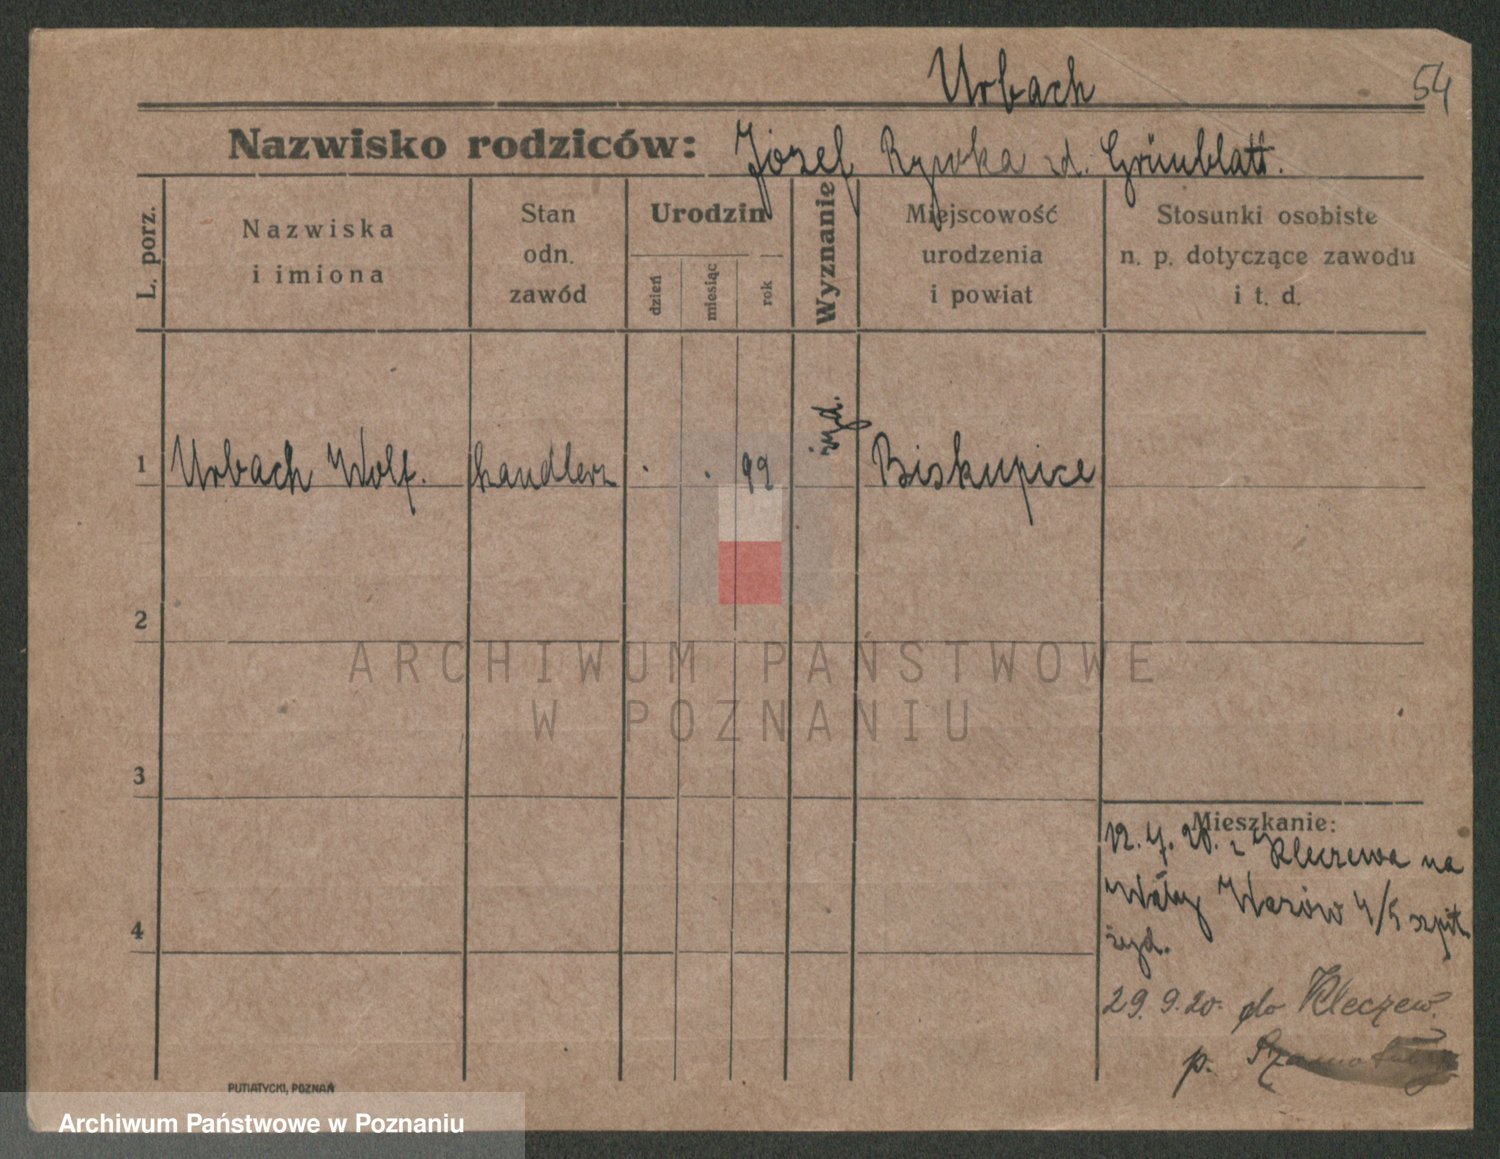 Urbach 54
Nazwisko rodziców: Józef Rywka zd. Grünblatt.
L. porz.
Nazwiska
i imiona
Stan
odn.
zawód
Urodzin
dzień
miesiąc
rok
Wyznanie
Miejscowość
urodzenia
i powiat
Stosunki osobiste
n. p. dotyczące zawodu
i t. d.
1 Urbach Wolf. handlerz . . 99 żyd. Biskupice
2
3
4
Mieszkanie:
12. 7. 20. z Kleczewa na
Wały Wazów 4/5 szpit.
żyd.
29. 9. 20. do Kleczew.
p.
PUTIATYCKI, POZNAŃ
ARCHIWUM PAŃSTWOWE
W POZNANIU
Archiwum Państwowe w Poznaniu